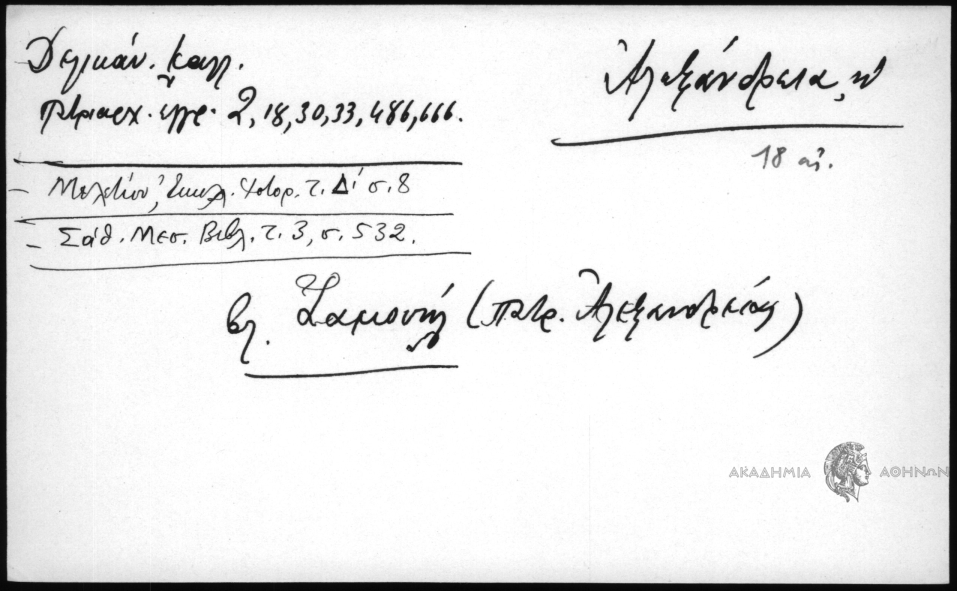 Δελικάν. Καλλ.
Πατριαρχ. ἔγγρ. 2, 18, 30, 33, 486, 666.
Ἀλεξάνδρεια, ἡ
18 αἰ.
– Μελετίου, Ἐκκλ. Ἱστορ. τ. Δ΄ σ. 8
– Σάθ. Μεσ. Βιβλ. τ. 3, σ. 532.
βλ. Σαμουήλ (Πατρ. Ἀλεξανδρείας)
ΑΚΑΔΗΜΙΑ ΑΘΗΝΩΝ